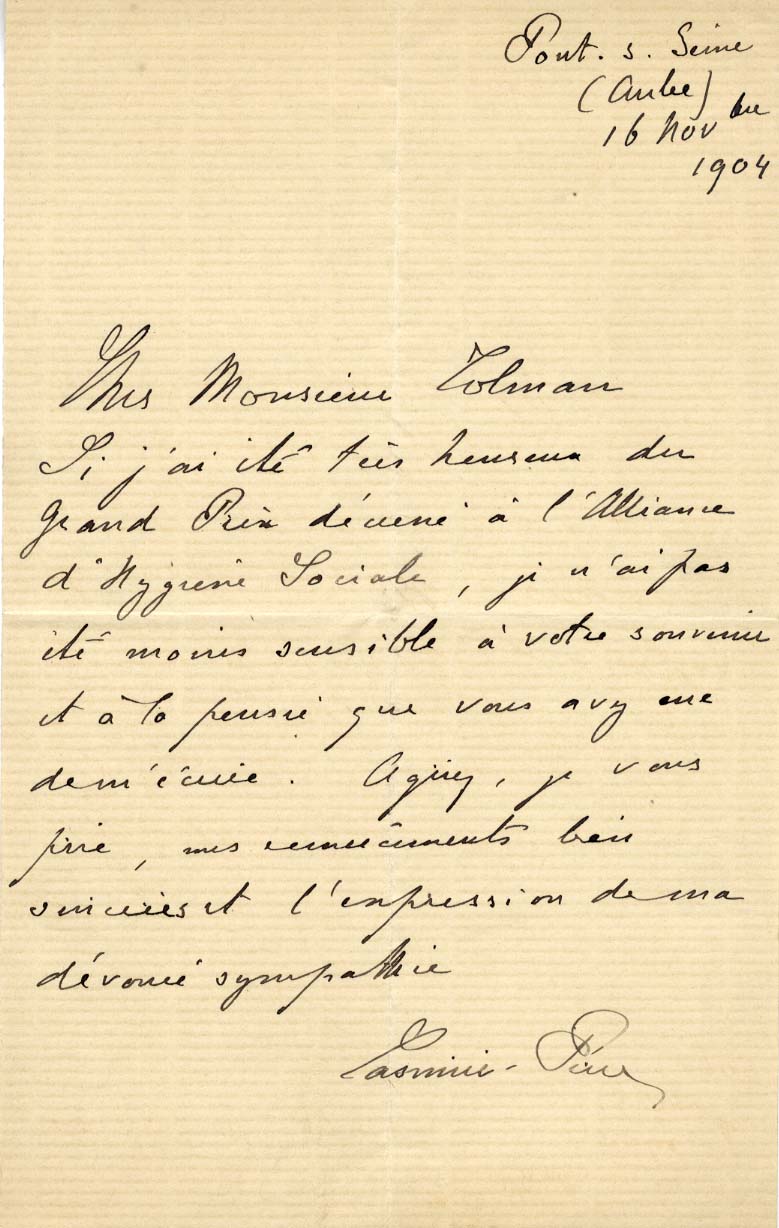 Pont. s. Seine
(Aube)
16 Novbre
1904
Cher Monsieur Tolman
Si j'ai été très heureux du
Grand Prix décerné à l'Alliance
d'Hygiène Sociale, je n'ai pas
été moins sensible à votre souvenir
et à la pensée que vous avez eue
de m'écrire. Agréez, je vous
prie, mes remerciements bien
sincères et l'expression de ma
dévouée sympathie
Casimir-Périer